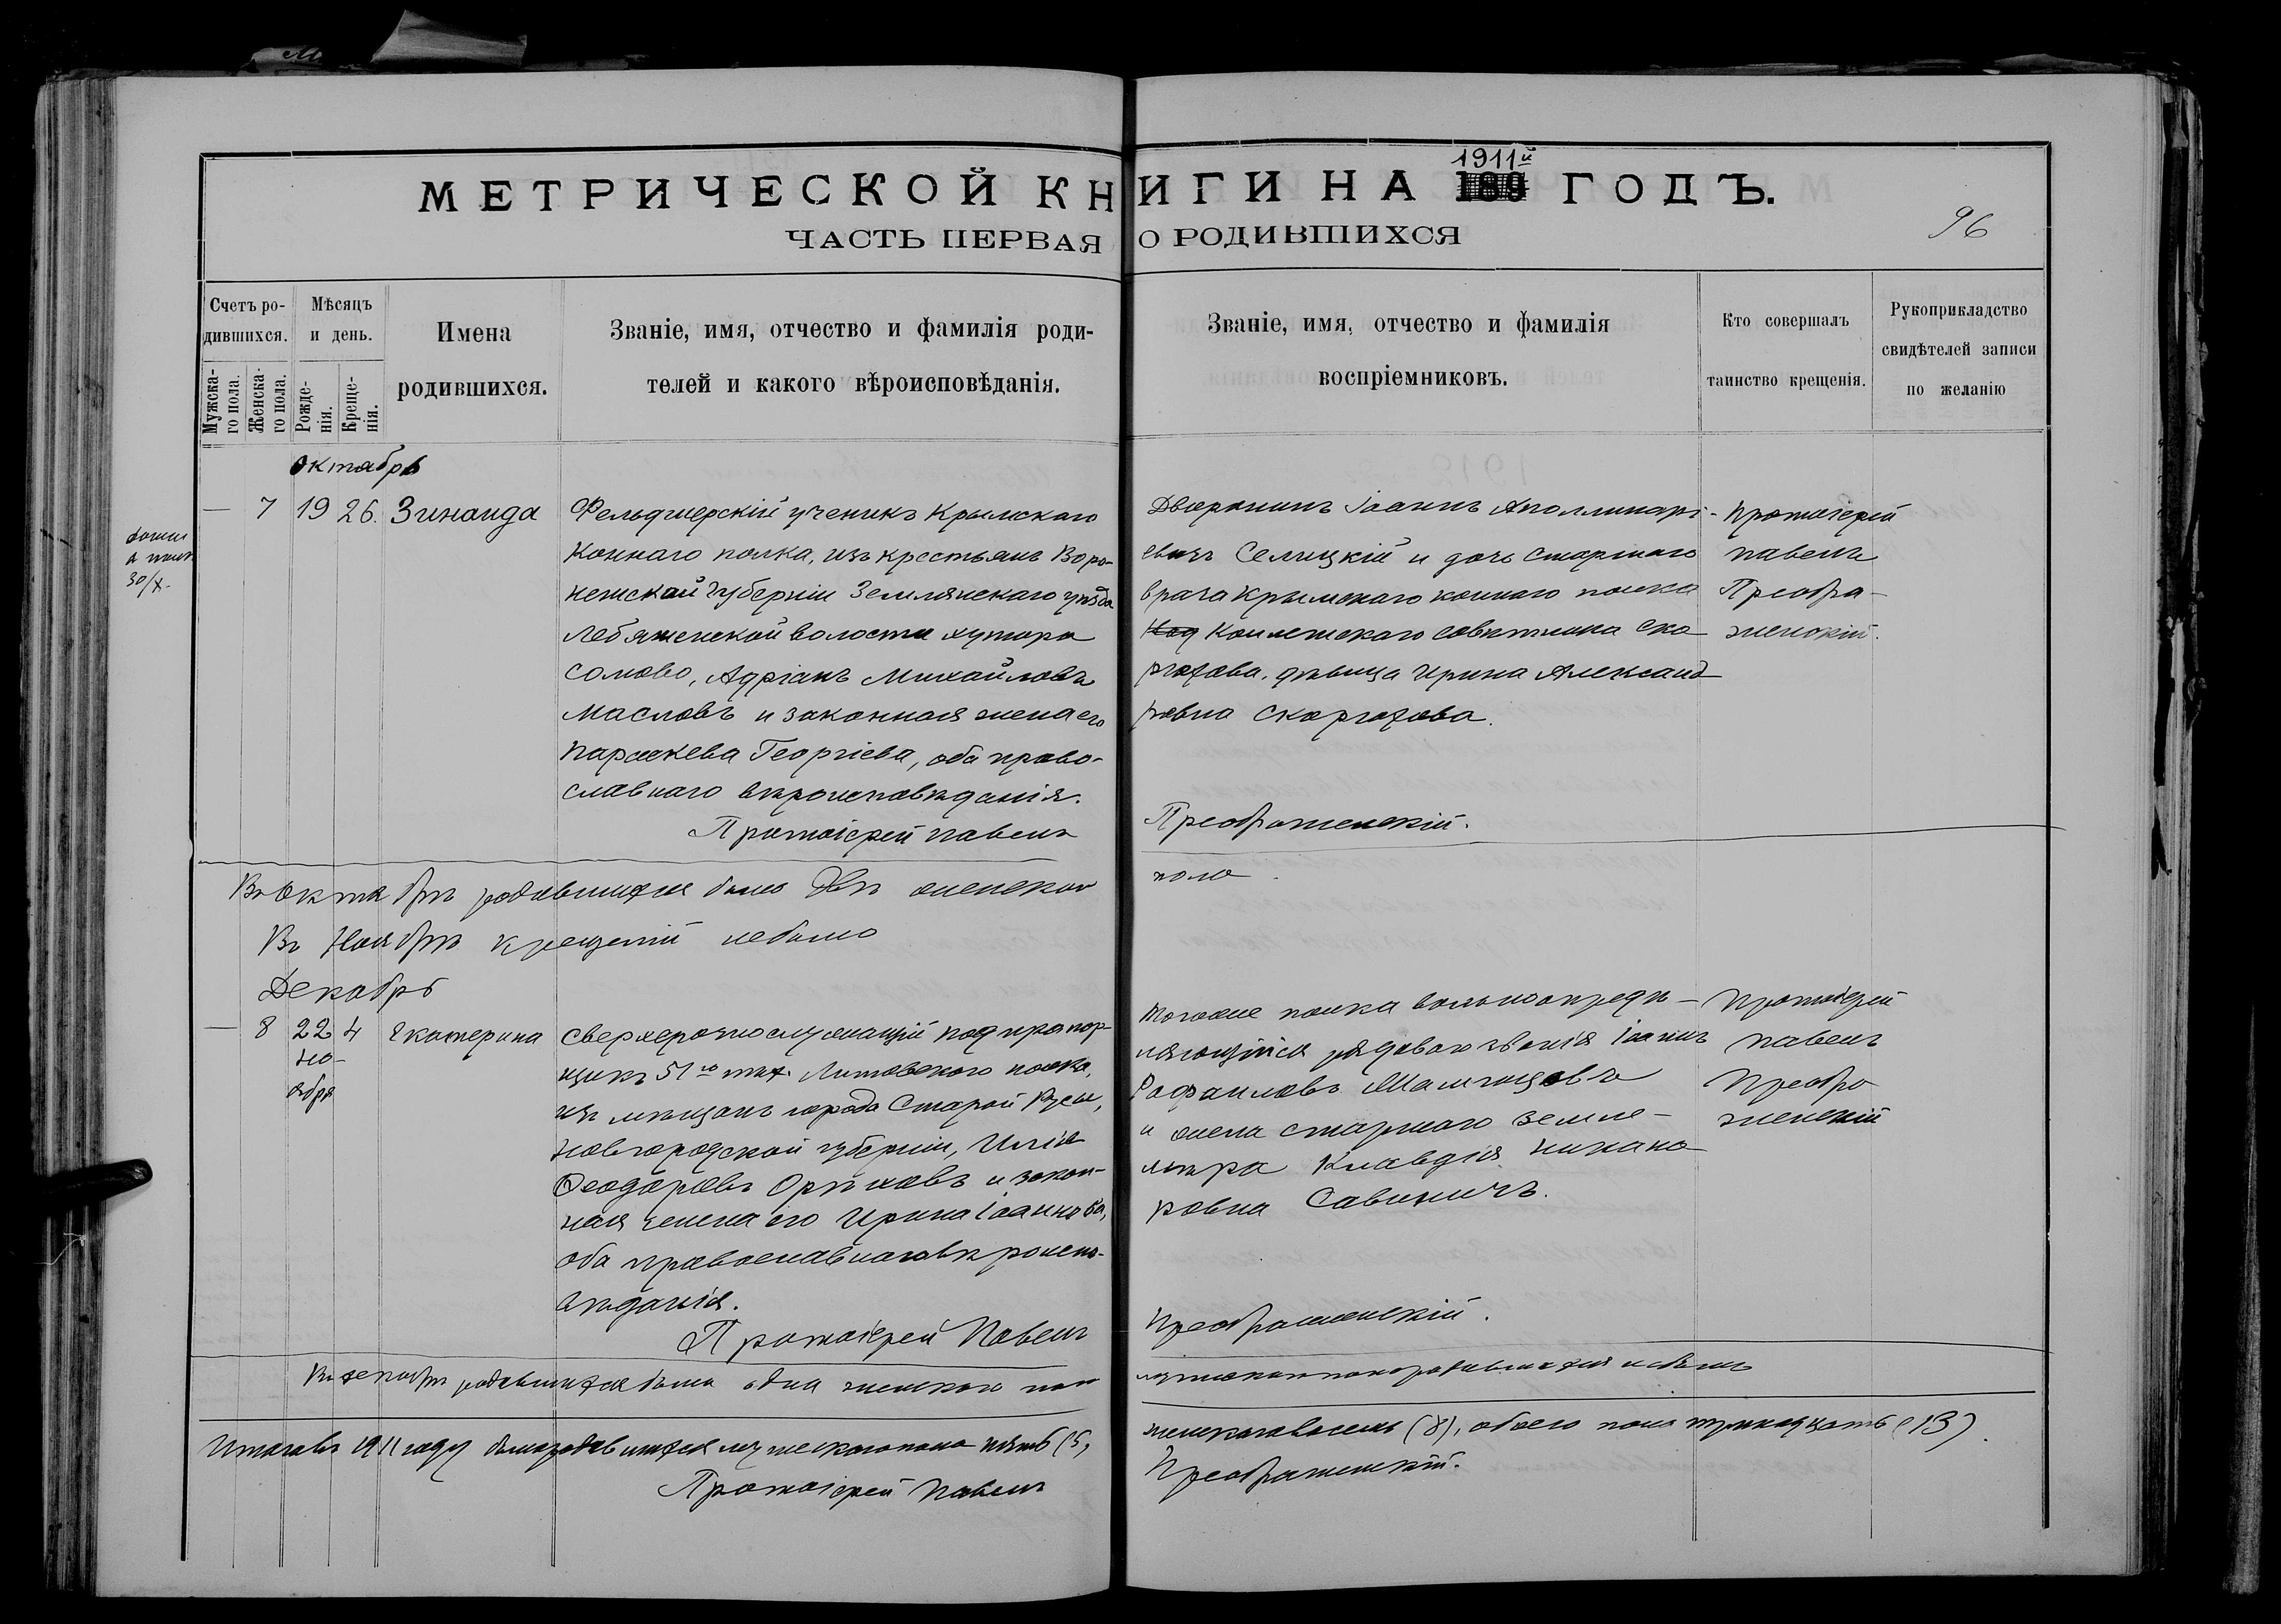 МЕТРИЧЕСКОЙ КНИГИ НА 1911й ГОДЪ.
ЧАСТЬ ПЕРВАЯ О РОДИВШИХСЯ
96
Счетъ ро-
дившихся.
Мужска-
го пола.
Женска-
го пола.
Мѣсяцъ
и день.
Рожде-
нія.
Креще-
нія.
Имена
родившихся.
Званіе, имя, отчество и фамилія роди-
телей и какого вѣроисповѣданія.
Званіе, имя, отчество и фамилія
воспріемниковъ.
Кто совершалъ
таинство крещенія.
Рукоприкладство
свидѣтелей записи
по желанію
Октябрь
30/X.
— 7 19 26. Зинаида
Фельдшерскій ученикъ Крымскаго
Коннаго полка, изъ крестьянъ Воро-
нежской губерніи Землянскаго уѣзда
Лебяженской волости хутора
Сомово, Адріанъ Михайловъ
Масловъ и законная жена его
Параскева Георгіева, оба право-
славнаго вѣроисповѣданія.
Протоіерей Павелъ
Дворянинъ Іоаннъ Аполлинарі-
евичъ Селицкій и дочь старшаго
врача Крымскаго коннаго полка
Коллежскаго совѣтника Ско
рохова, дѣвица Ирина Александ
ровна Скорохова.
Преображенскій.
Протоіерей
Павелъ
Преобра-
женскій.
Въ Октябрѣ родившихся было двѣ женскаго
пола.
Въ Ноябрѣ крещеній не было
Декабрь
— 8 22 4 Екатерина
но-
ября
Сверхсрочнослужащій подпрапор-
щикъ 51го пѣх. Литовскаго полка,
изъ мѣщанъ города Старой Русы,
Новгородской губерніи, Илія
Ѳеодоровъ Орѣховъ и закон-
ная жена его Ирина Іоаннова,
оба православнаго вѣроиспо-
вѣданія.
Протоіерей Павелъ
Тогоже полка вольноопредѣ-
ляющійся рядового званія Іоаннъ
Рафаиловъ
и жена старшаго земле-
мѣра Клавдія Никано
ровна Савиничъ.
Преображенскій.
Протоіерей
Павелъ
Преобра
женскій
Въ декабрѣ родившихся была одна женскаго пол
мужского пола родившихся не было
Итого въ 1911 году было родившихся мужескаго пола пять (5,
женскаго восемь (8), обоего пола тринадцать (13).
Протоіерей Павелъ
Преображенскій.